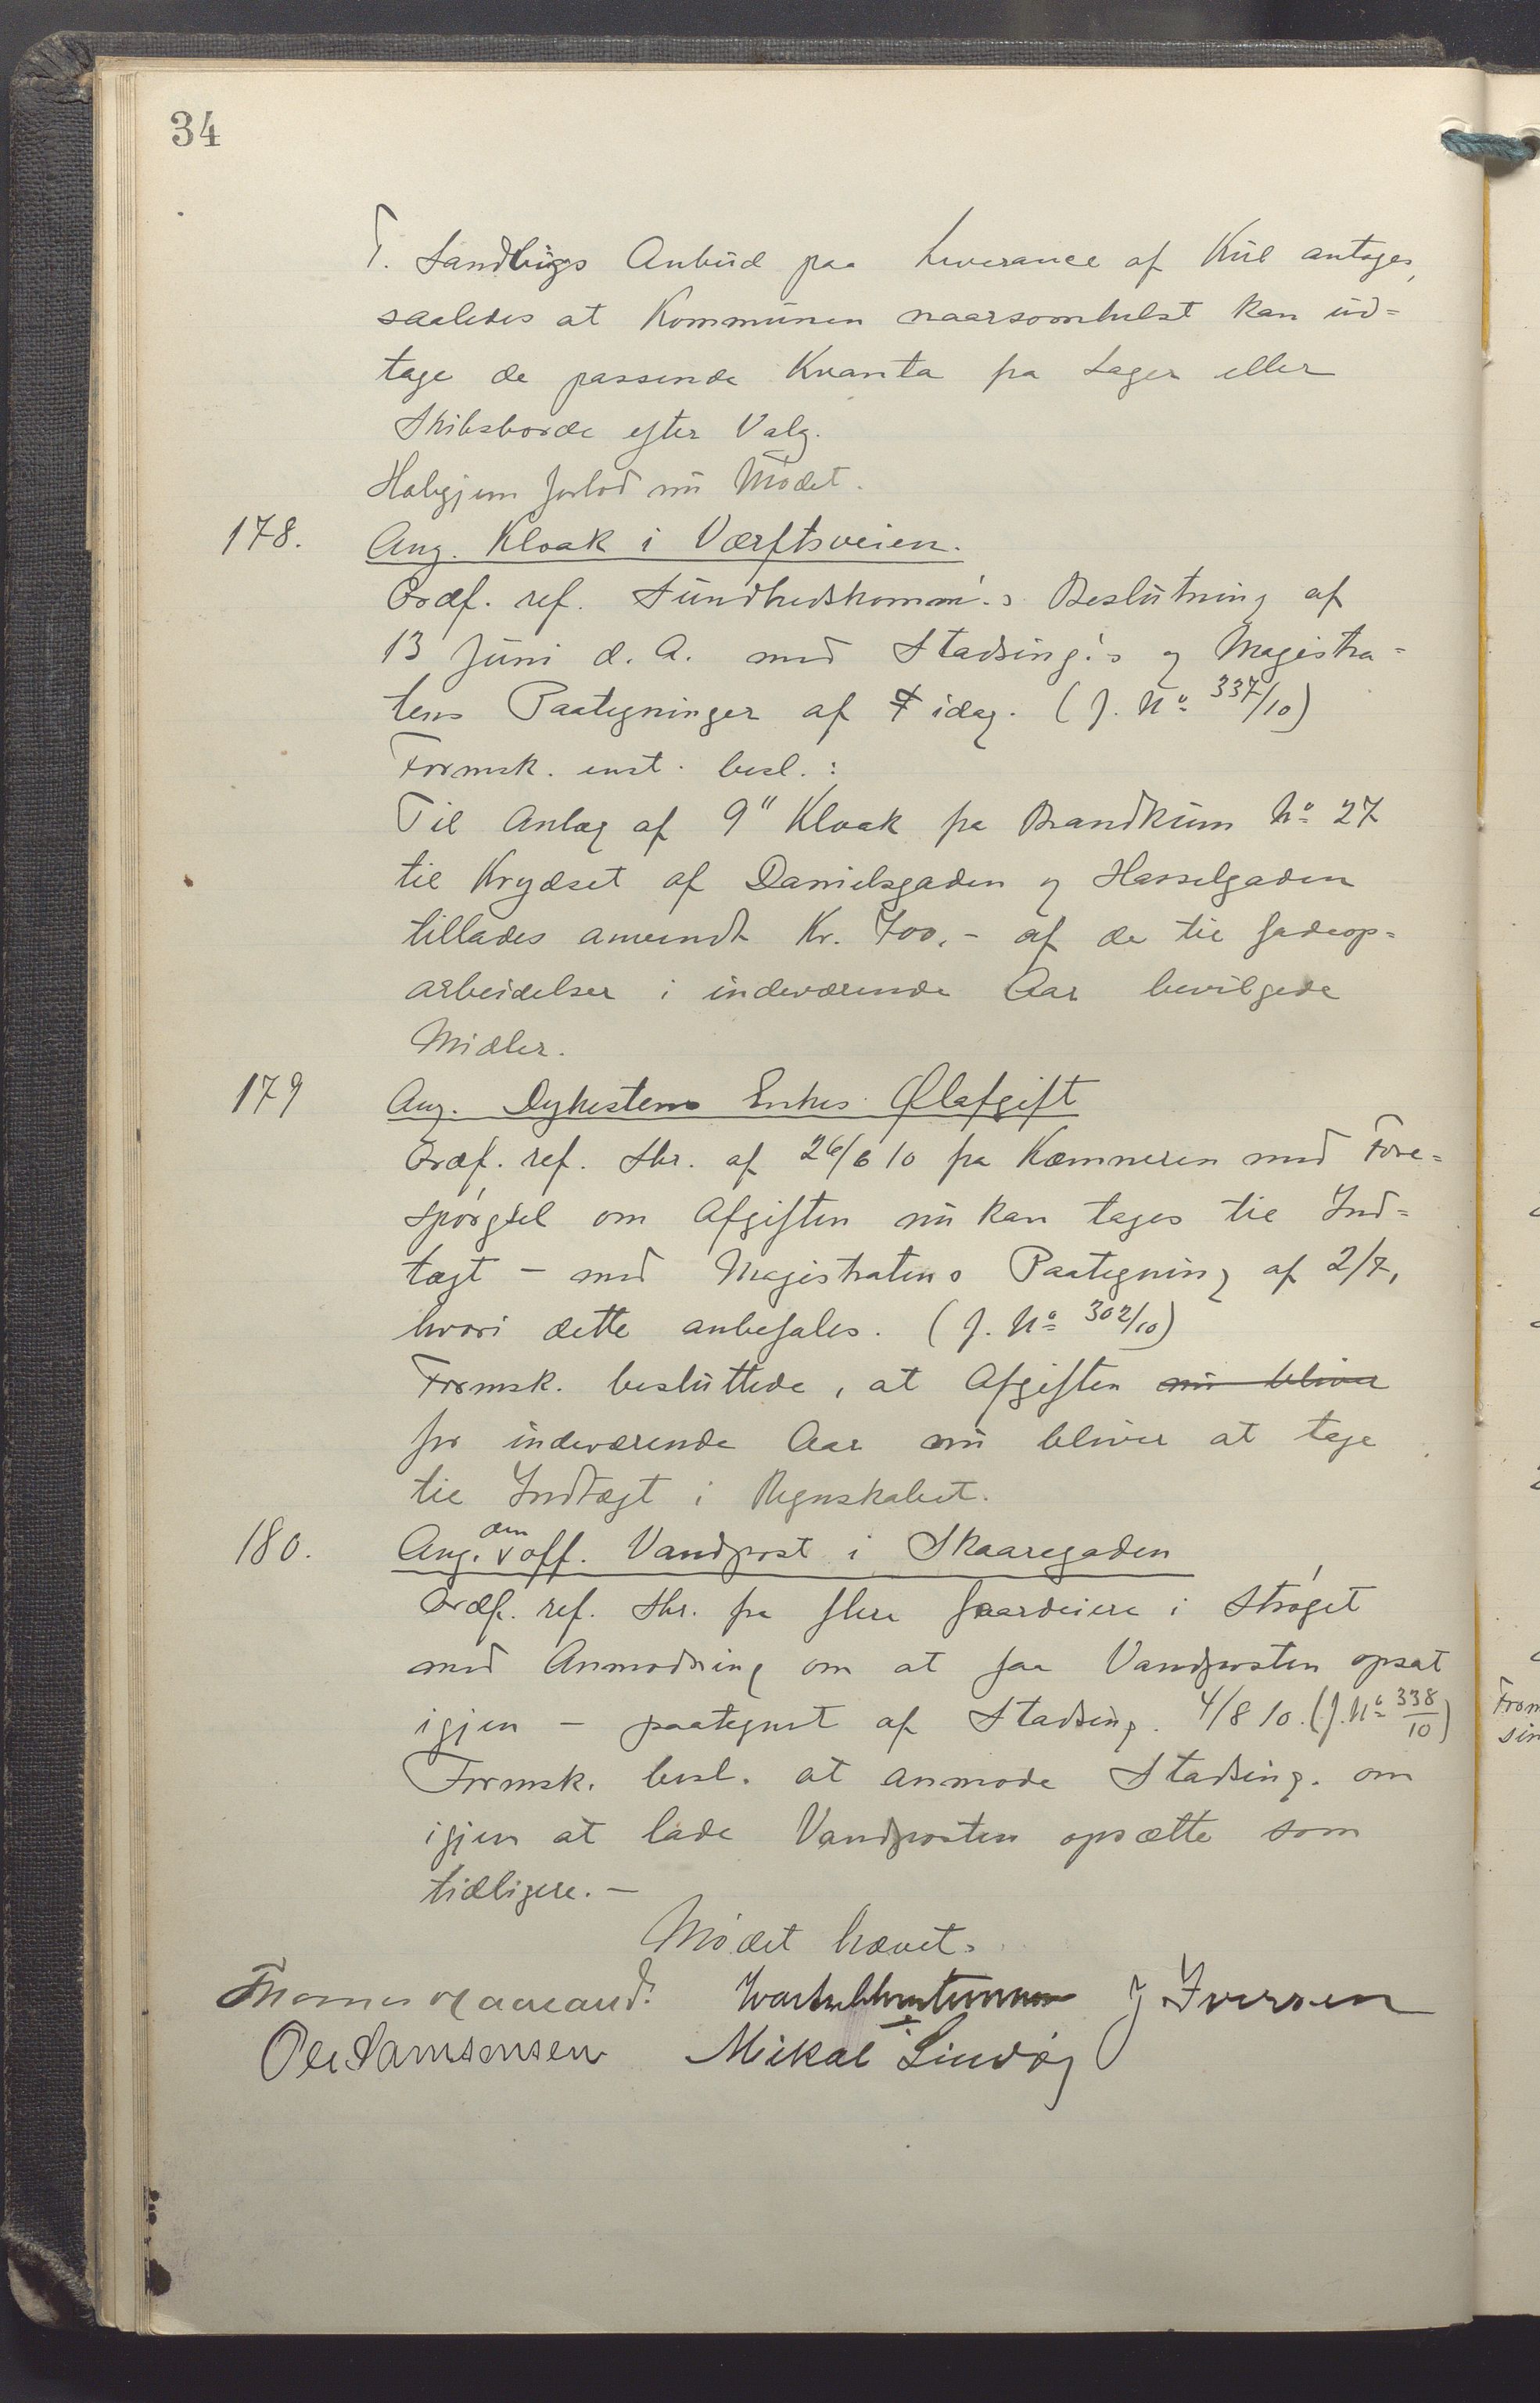 34
T. Sandbugs Anbud paa Leverance af Kul antages,
saaledes at Kommunen naarsomhelst kan ud=
tage de passende Kvanta fra Lager eller
Skibsborde efter Valg.
Hølegjem forlod nu Mødet.
178. Ang. Kloak i Værftsveien.
Ordf. ref. Sundhedskomm's Beslutning af
13 Juni d. A. med Stadsing.'s og Magistra=
tens Paategninger af idag. (J. No 337/10)
Formsk. enst. besl.:
Til Anlæg af 9" Kloak fra Brandkum No 27
til Krydset af Danielsgaden og Hasselgaden
tillades anvendt Kr. 700,- af de til Gadeop=
arbeidelser i indeværende Aar bevilgede
Midler.
179 Ang. Dykestens Enkes Ølafgift
Ordf. ref. Skr. af 26/6 10 fra Kæmneren med Fore=
spørgsel om Afgiften nu kan tages til Ind=
tægt - med Magistratens Paategning af 2/7,
hvori dette anbefales. (J. No 302/10)
Formsk. besluttede, at Afgiften nu bliver
for indeværende Aar nu bliver at tage
til Indtægt i Regnskabet.
180. Ang. den off. Vandpost i Skaaregaden
Ordf. ref. Skr. fra flere Gaardeiere i Strøget
med Anmodning om at faa Vandposten opsat
igjen - paategnet af Stadsing. 4/8 10. (J. No 338/10)
Formsk. besl. at anmode Stadsing. om
igjen at lade Vandposten opsætte som
tidligere. -
Mødet hævet.
J Iversen
Ole Samsonsen Mikal Lindøy